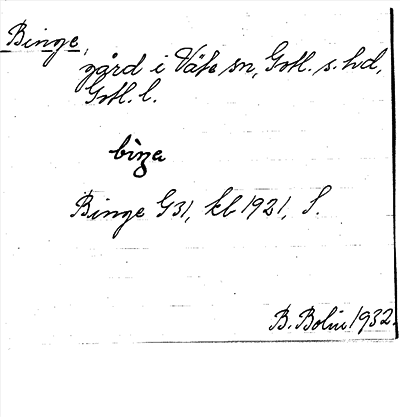 Binge,
gård i Väte sn, Gotl. s. hd,
Gotl. l.
bìŋa
Binge G31, kb 1921, S.
B. Bolin 1932.